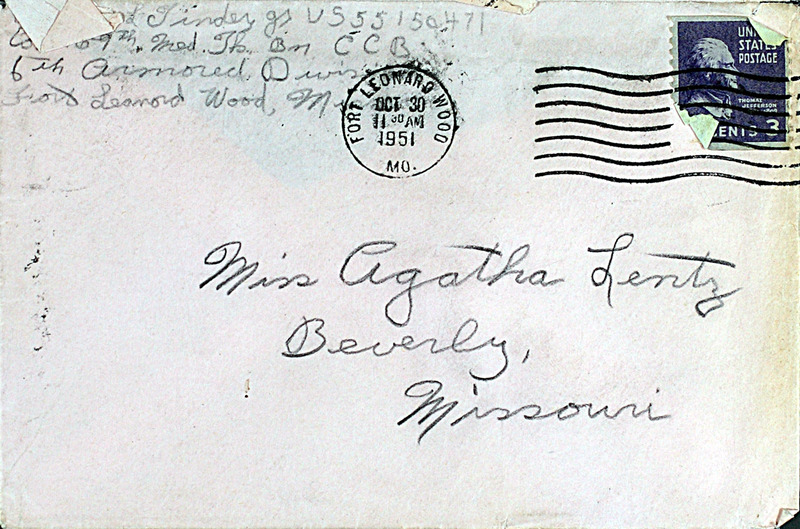 US55150471
69th Med. Tk. Bn CCB
6th Armored Divis
Fort Leonard Wood, M
FORT LEONARD WOOD
OCT 30
11 30 AM
1951
MO.
UNI
STATES
POSTAGE
THOMAS
JEFFERSON
CENTS 3
Miss Agatha Lentz
Beverly,
Missouri